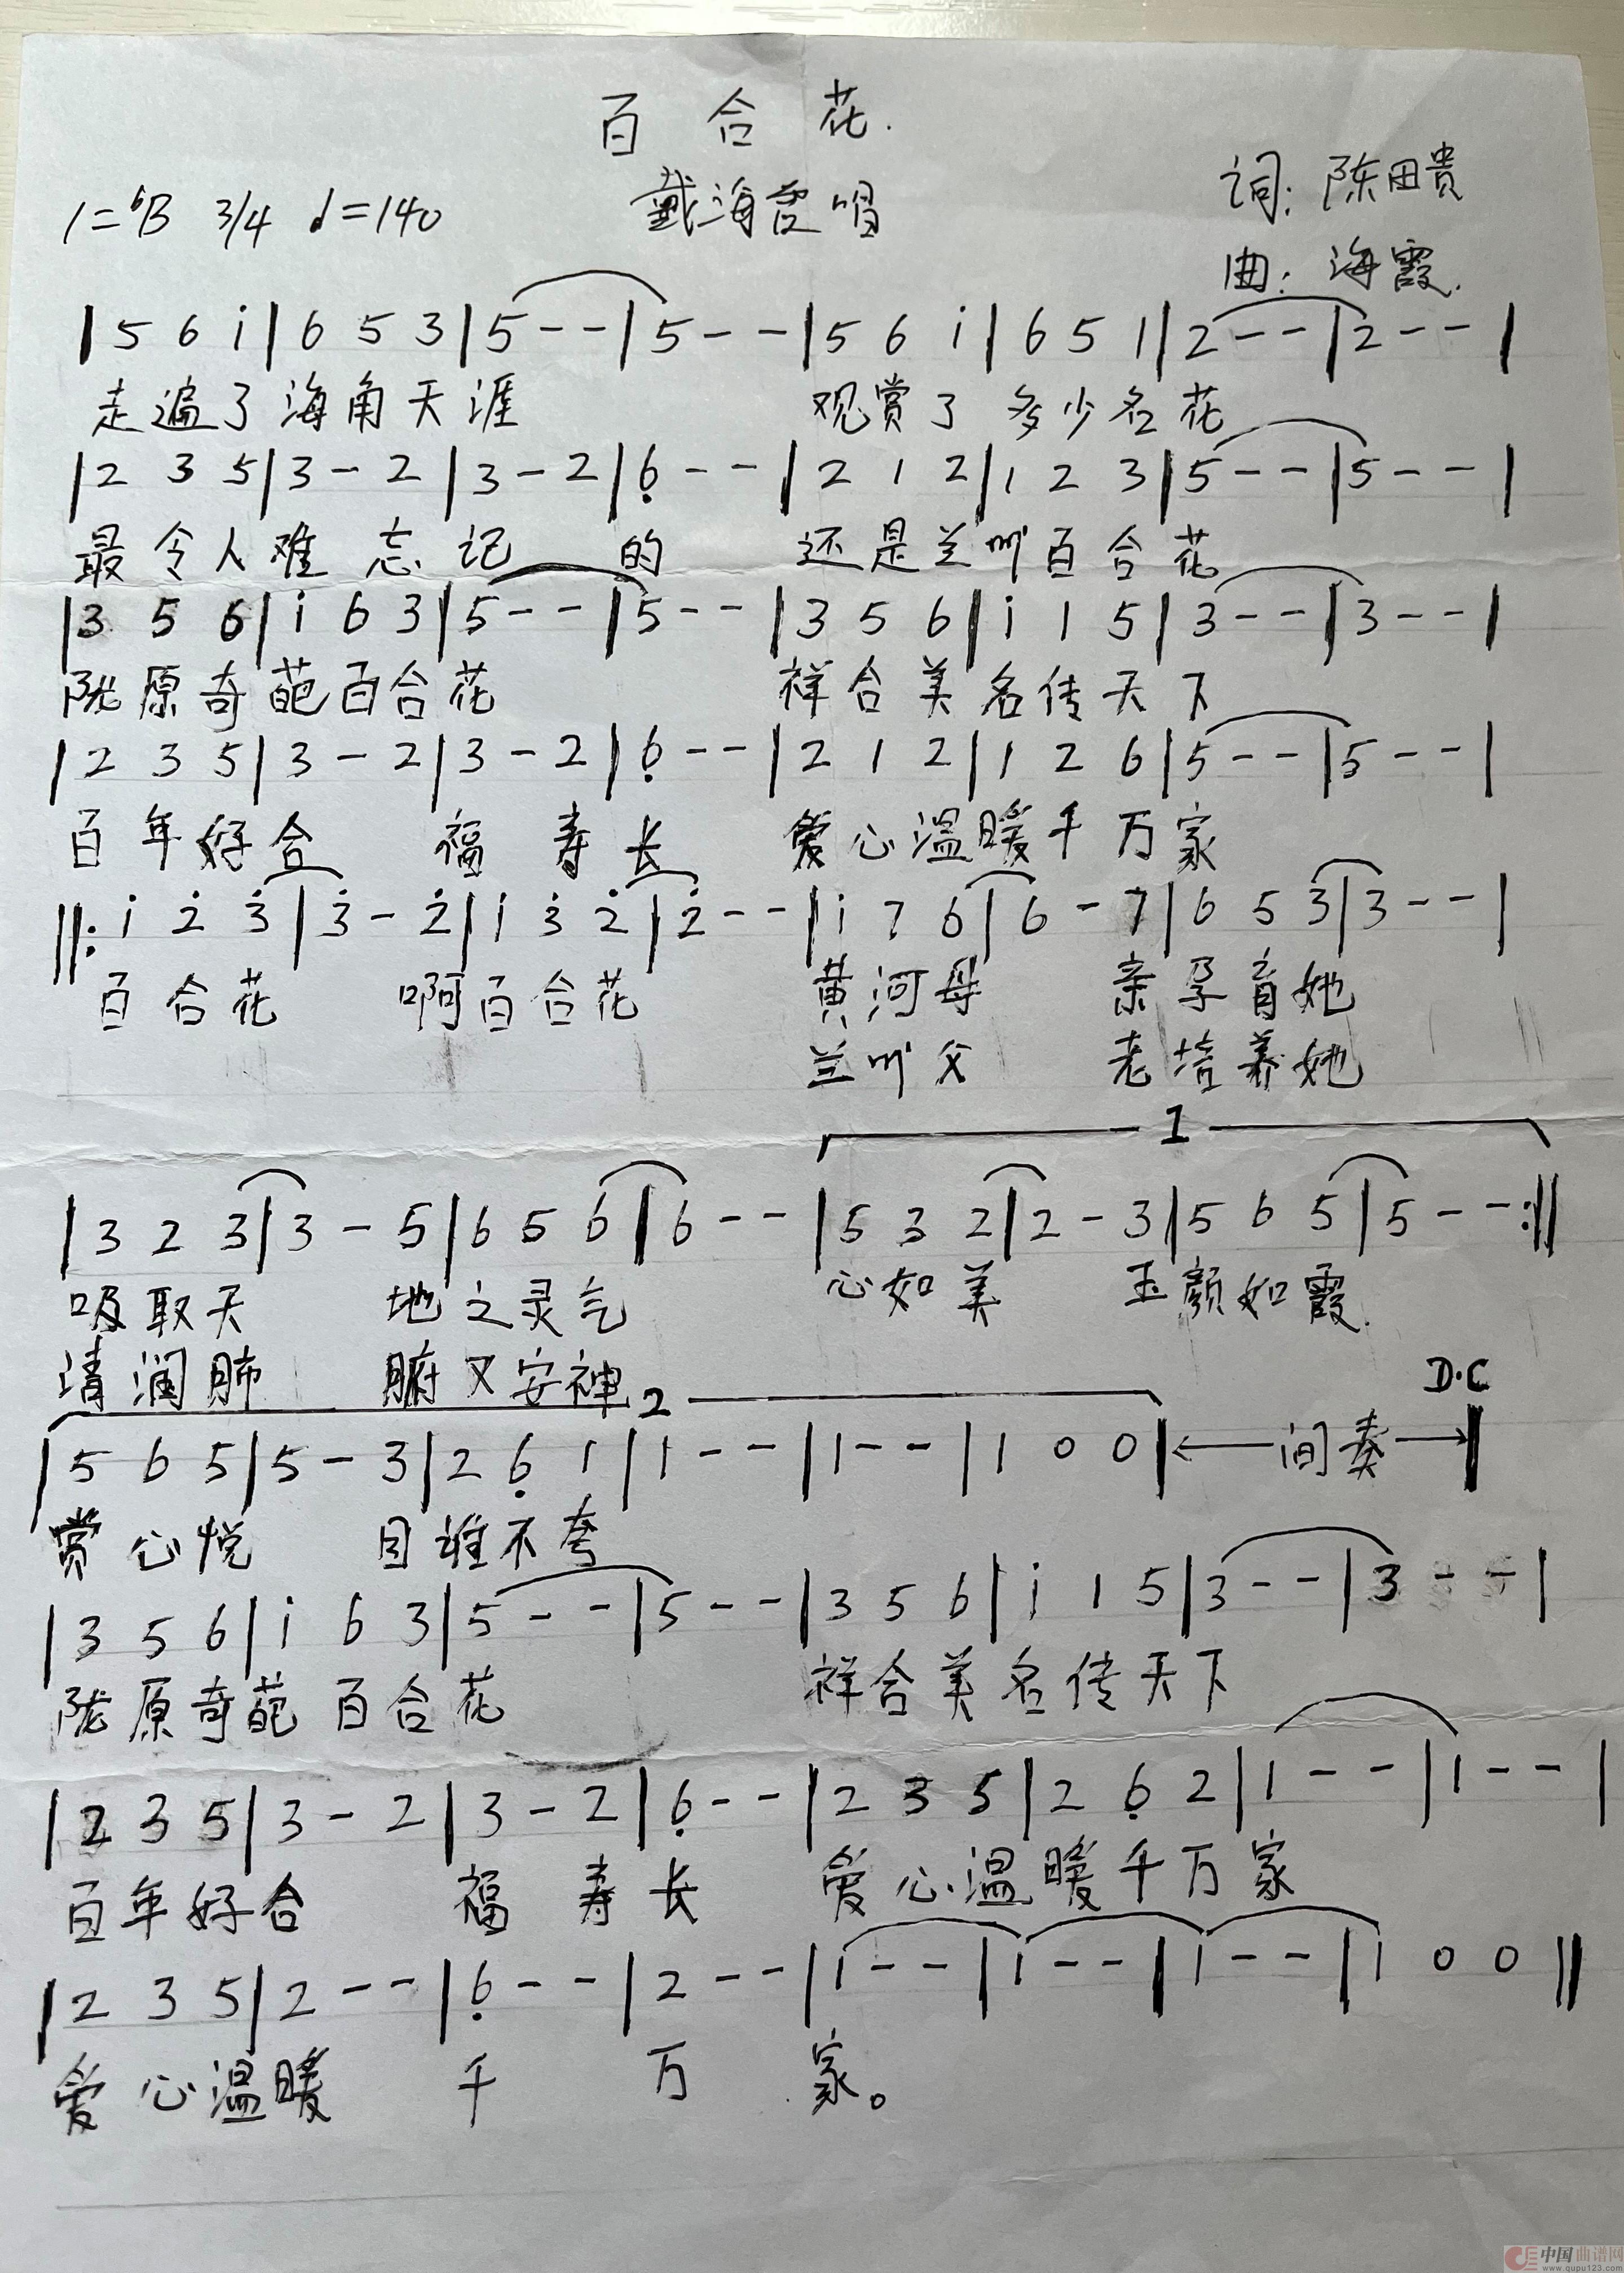 百合花.
1=bB 3/4 ♩=140
戴海霞唱
词: 陈田贵
曲: 海霞.
| 5 6 i | 6 5 3 | 5 - - | 5 - - | 5 6 i | 6 5 1 | 2 - - | 2 - - |
走遍了海角天涯 观赏了多少名花
| 2 3 5 | 3 - 2 | 3 - 2 | 6̣ - - | 2 1 2 | 1 2 3 | 5 - - | 5 - - |
最令人难忘记的 还是兰州百合花
| 3 5 6 | i 6 3 | 5 - - | 5 - - | 3 5 6 | i 1 5 | 3 - - | 3 - - |
陇原奇葩百合花 祥合美名传天下
| 2 3 5 | 3 - 2 | 3 - 2 | 6̣ - - | 2 1 2 | 1 2 6 | 5 - - | 5 - - |
百年好合 福寿长 爱心温暖千万家
||: i 2̇ 3̇ | 3̇ - 2̇ | i 3̇ 2̇ | 2̇ - - | i 7 6 | 6 - 7 | 6 5 3 | 3 - - |
百合花 啊百合花 黄河母 亲孕育她
兰州父 老培养她
1
| 3 2 3 | 3 - 5 | 6 5 6 | 6 - - | 5 3 2 | 2 - 3 | 5 6 5 | 5 - - :||
吸取天 地之灵气 心如美 玉颜如霞.
清润肺 腑又安神
2 D.C
| 5 6 5 | 5 - 3 | 2 6̣ 1 | 1 - - | 1 - - | 1 0 0 | ← 间奏 → |
赏心悦 目谁不夸
| 3 5 6 | i 6 3 | 5 - - | 5 - - | 3 5 6 | i 1 5 | 3 - - | 3 - - |
陇原奇葩百合花 祥合美名传天下
| 2 3 5 | 3 - 2 | 3 - 2 | 6̣ - - | 2 3 5 | 2 6̣ 2 | 1 - - | 1 - - |
百年好合 福寿长 爱心温暖千万家
| 2 3 5 | 2 - - | 6̣ - - | 2 - - | i - - | i - - | 1 - - | 1 0 0 ||
爱心温暖 千 万 家。
中国曲谱网
www.qupu123.com